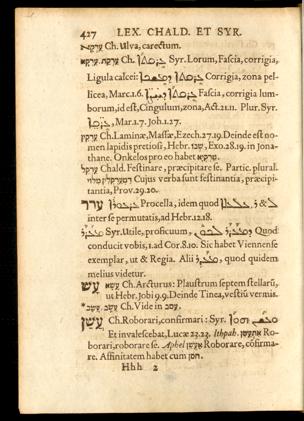 427 LEX. CHALD. ET SYR.
ערקא Ch. Ulva, carectum.
ערקת, ערקא Ch. Syr. Lorum, Fascia, corrigia,
Ligula calcei: Corrigia, zona pel-
licea, Marc. 1.6. Fascia, corrigia lum-
borum, id est, Cingulum, zona, Act. 21.11. Plur. Syr.
, Mar. 1.7. Joh. 1.27.
ערקין Ch. Laminæ, Massæ, Ezech. 27.19. Deinde est no-
men lapidis pretiosi, Hebr. שבו, Exo. 28.19. in Jona-
thane. Onkelos pro eo habet
Chald. Festinare, præcipitare se. Partic. plural.
Cujus verba sunt festinantia, præcipi-
tantia, Prov. 29.20.
ערר Procella, idem quod &
inter se permutatis, ad Hebr. 12.18.
Syr. Utile, proficuum, Quod
conducit vobis, 1. ad Cor. 8.10. Sic habet Viennense
exemplar, ut & Regia. Alii quod quidem
melius videtur.
עש עשא Ch. Arcturus: Plaustrum septem stellarū,
ut Hebr. Jobi 9.9. Deinde Tinea, vestiū vermis.
* עשב, עשב Ch. Vide in עסב.
עשן Ch. Roborari, confirmari: Syr.
Et invalescebat, Lucæ 23.23. Ithpah. אתעשן Ro-
borari, roborare se. Aphel אעשן Roborare, cōfirma-
re. Affinitatem habet cum חסן.
Hhh 2